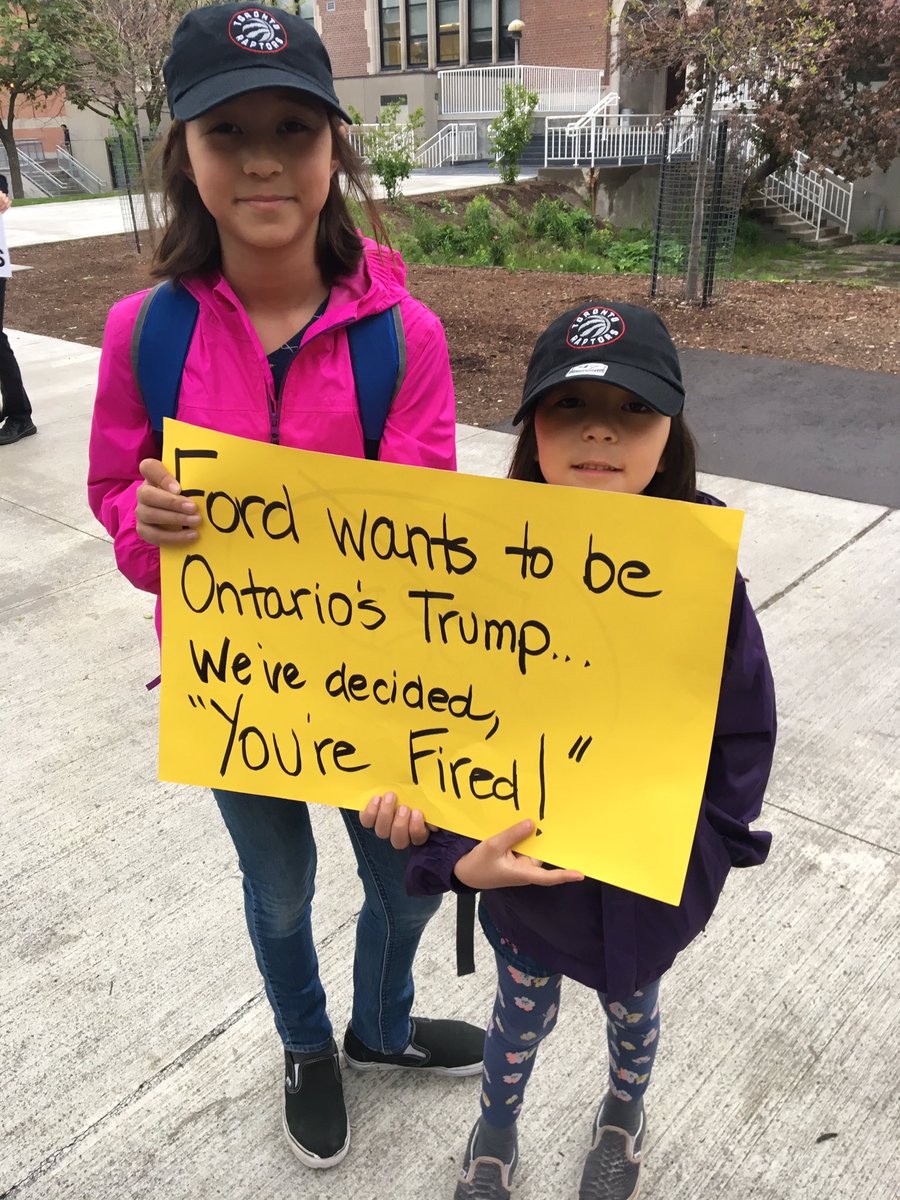 TORONTO
RAPTORS
TORONTO
RAPTORS
Ford wants to be
Ontario's Trump...
We've decided,
"You're Fired!"
S